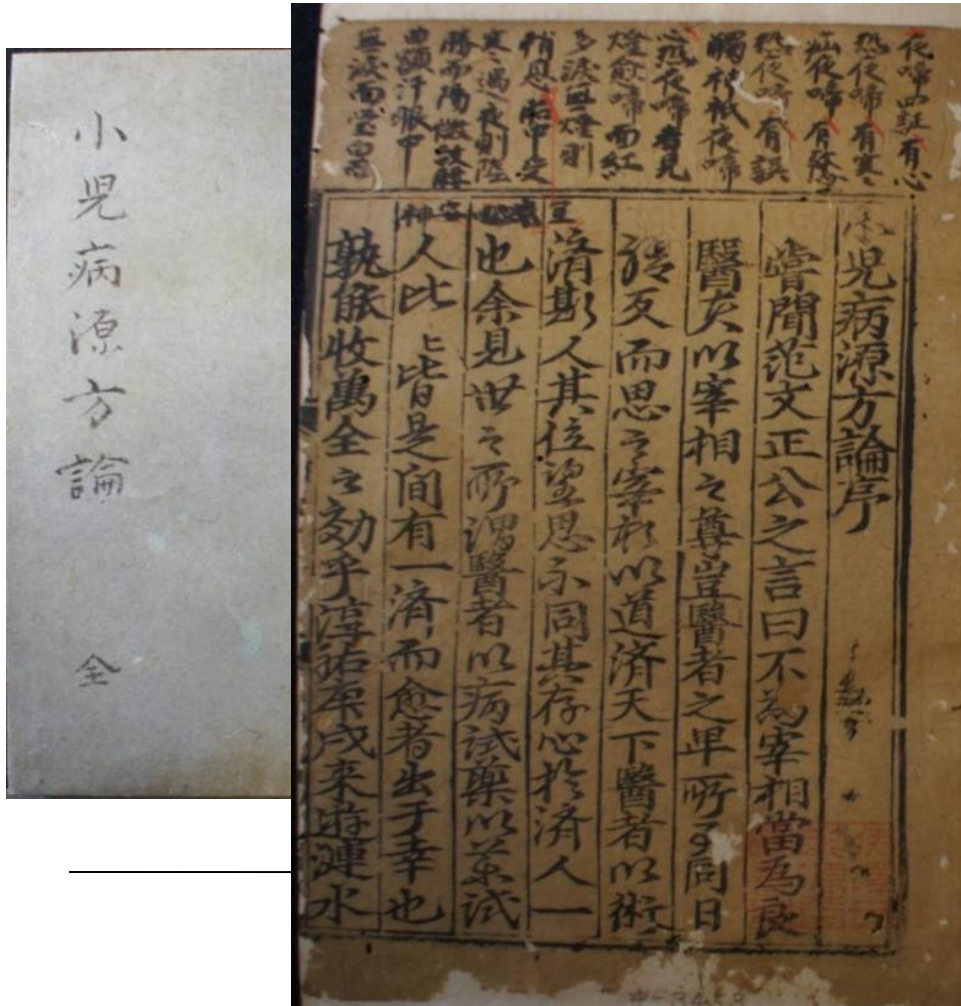 小児病源方論
全
夜啼四証有心
熱夜啼有寒
疝夜啼有
熱夜啼有誤
觸神祇夜啼
心熱夜啼者見
燈愈啼面紅
多淚無燈則
稍息
寒遇夜則陰
勝而陽微故
曲頭汗眼中
無淚面瑩白
児病源方論序
嘗聞范文正公之言曰不為宰相當為良
醫夫以宰相之尊豈醫者之卑所可同日
語反而思之宰相以道済天下醫者以術
済斯人其位望恩不同其存心於済人一
也余見世之所謂醫者以病試藥以藥試
人比ヒ皆是间有一済而愈者出于幸也
孰能收萬全之効乎淳祐庚戌来遊漣水